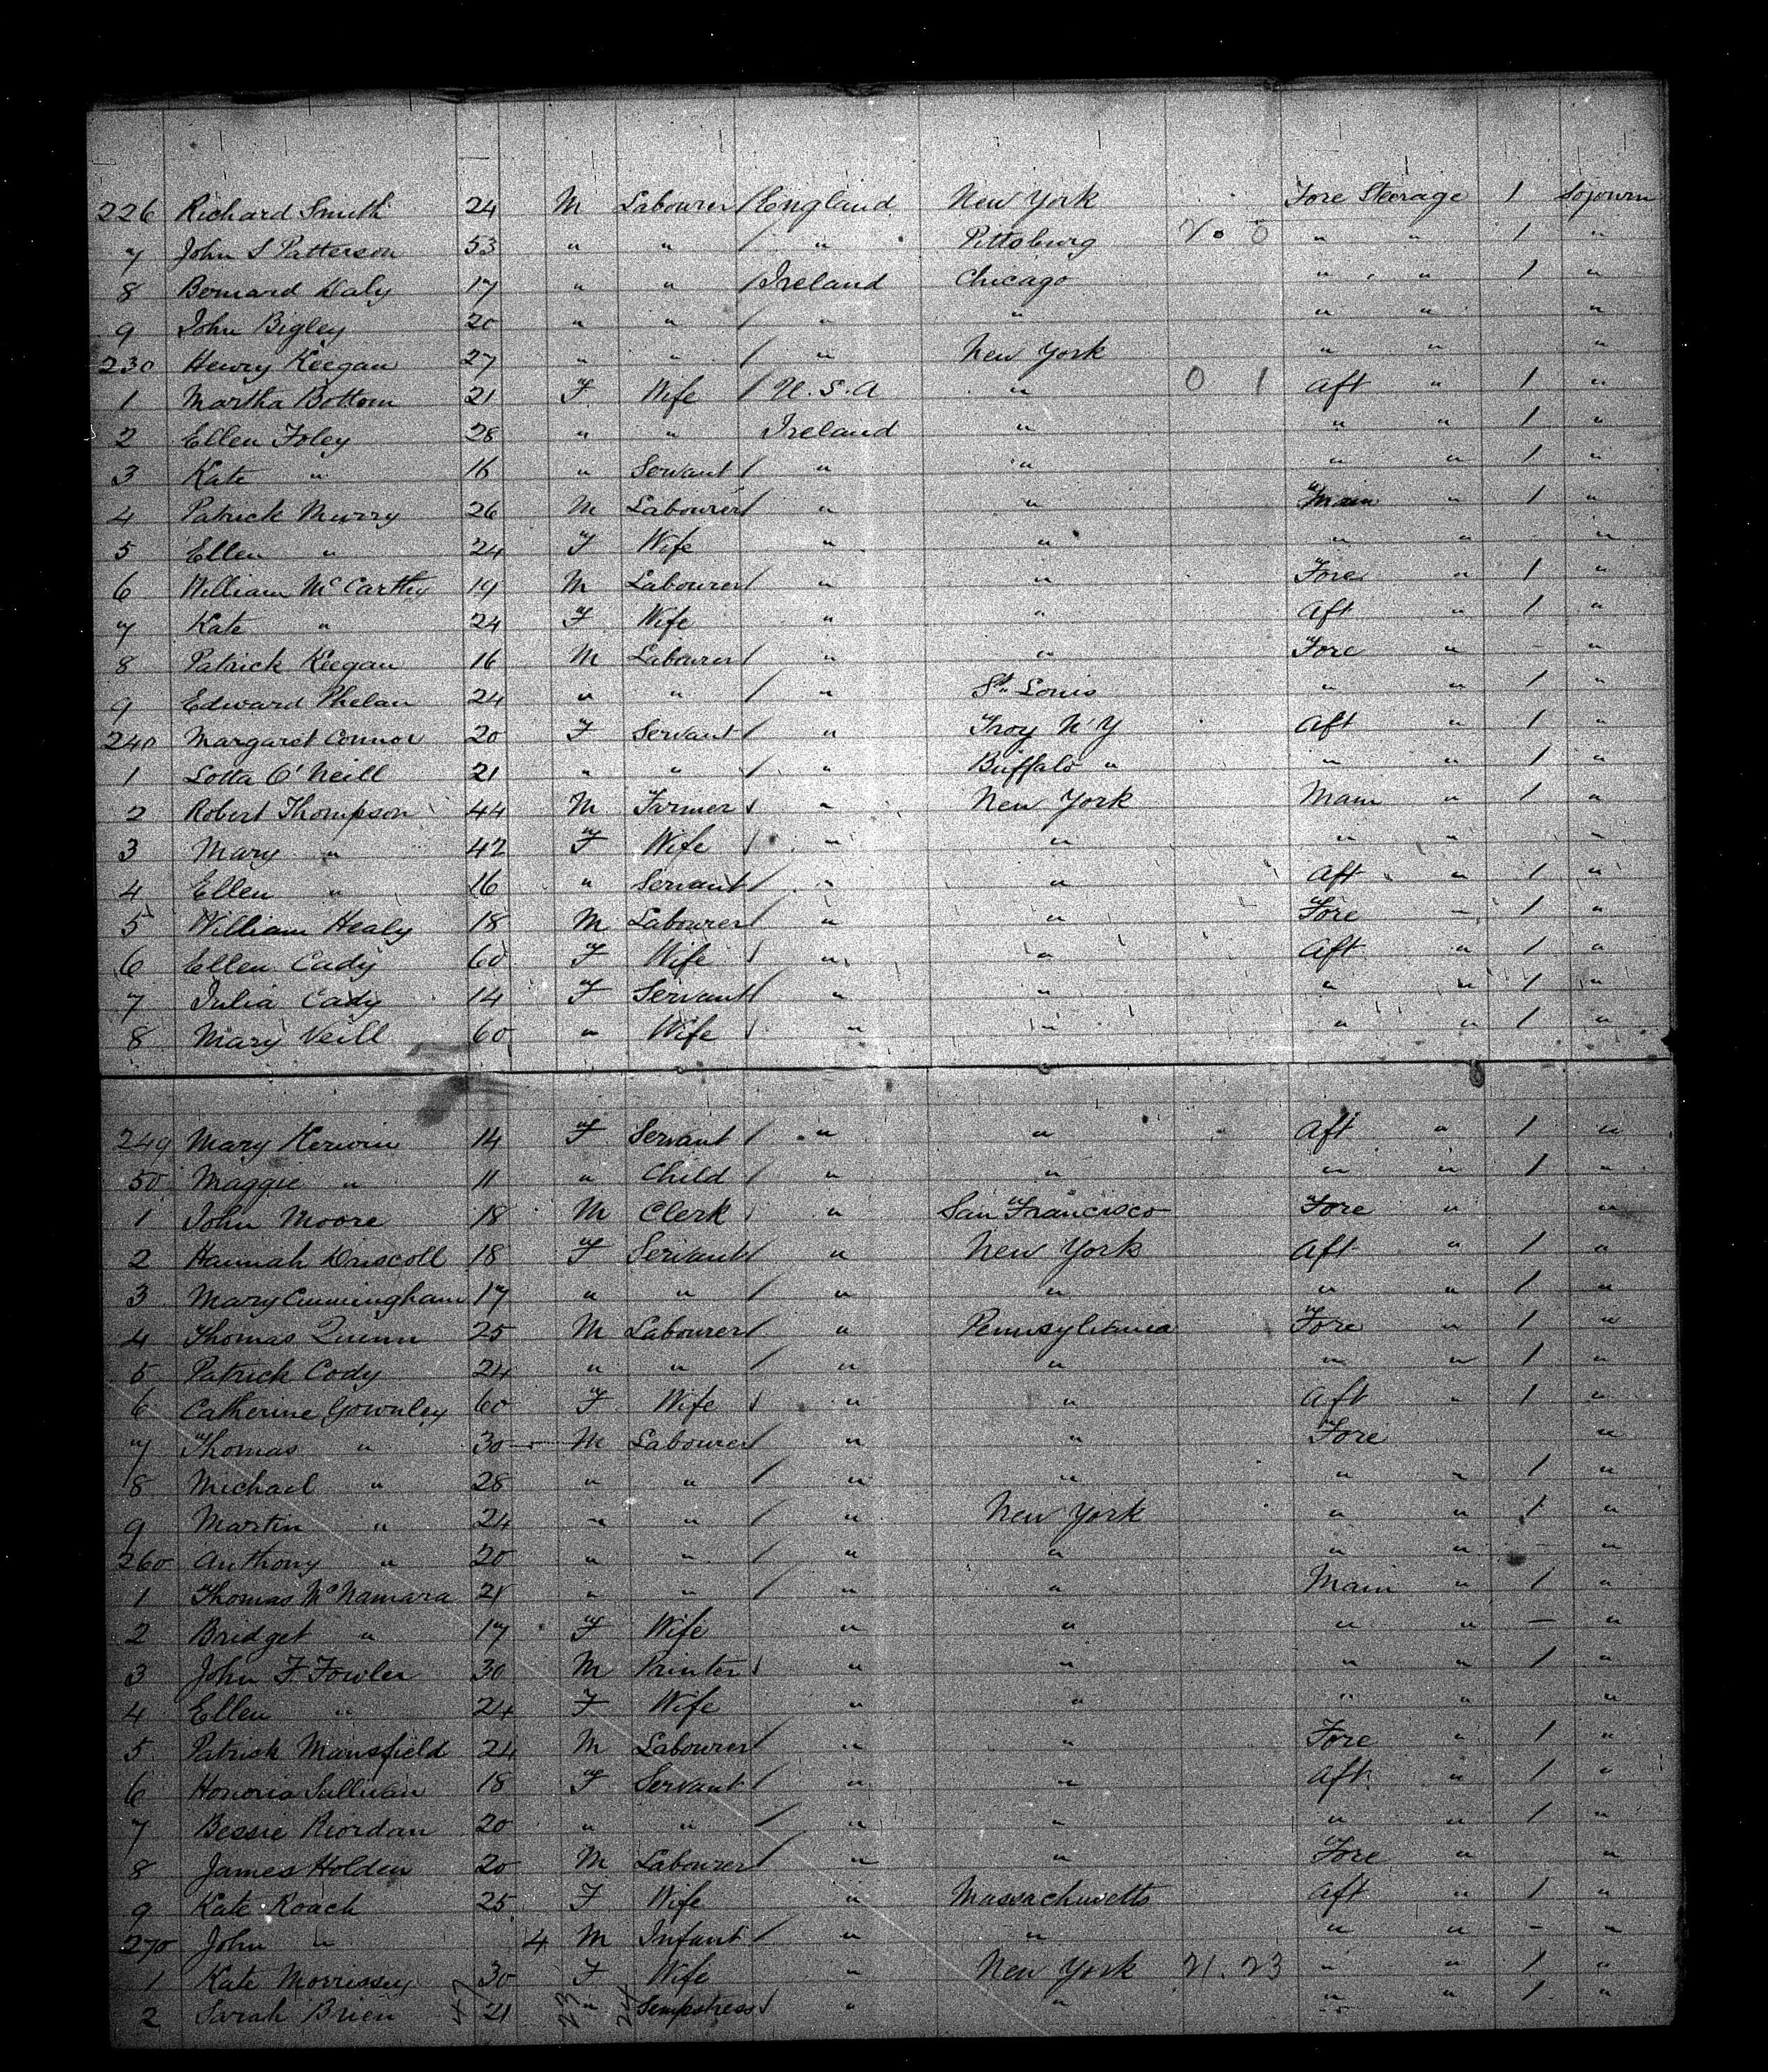 226 Richard Smith 24 M Labourer / England New York Fore Steerage 1 Sojourn
7 John S Patterson 53 " " / " Pittsburg " " 1 "
8 Bernard Daly 17 " " / Ireland Chicago " " 1 "
9 John Bigley 20 " " / " " " " "
230 Henry Keegan 27 " " / " New York " " "
1 Martha Bottom 21 F Wife / U.S.A " 0 1 Aft " 1 "
2 Ellen Foley 28 " " Ireland " " " 1 "
3 Kate " 16 " Servant / " " " " 1 "
4 Patrick Murry 26 M Labourer / " " Main " 1 "
5 Ellen " 24 F Wife " " " " "
6 William McCarthy 19 M Labourer / " " Fore " 1 "
7 Kate " 24 F Wife " " Aft " 1 "
8 Patrick Keegan 16 M Labourer / " " Fore " - "
9 Edward Phelan 24 " " / " St Louis " " 1 "
240 Margaret Connor 20 F Servant / " Troy N'Y Aft " 1 "
1 Lotta O'Neill 21 " " / " Buffalo " " " 1 "
2 Robert Thompson 44 M Farmer / " New York Main " 1 "
3 Mary " 42 F Wife / " " " " "
4 Ellen " 16 " Servant / " " Aft " 1 "
5 William Healy 18 M Labourer / " " Fore " 1 "
6 Ellen Cady 60 F Wife / " " Aft " 1 "
7 Julia Cady 14 F Servant / " " " " 1 "
8 Mary Veill 60 " Wife / " " " " 1 "
249 Mary Kerwin 14 F Servant / " " Aft " 1 "
50 Maggie " 11 " Child / " " " " 1 "
1 John Moore 18 M Clerk / " San Francisco Fore " "
2 Hannah Driscoll 18 F Servant / " New York Aft " 1 "
3 Mary Cunningham 17 " " / " " " " 1 "
4 Thomas Quinn 25 M Labourer / " Pennsylvania Fore " 1 "
5 Patrick Cody 24 " " / " " " " 1 "
6 Catherine Gownley 60 F Wife / " " Aft " 1 "
7 Thomas " 30 M Labourer / " " Fore "
8 Michael " 28 " " / " " " " 1 "
9 Martin " 24 " " / " New York " " 1 "
260 Anthony " 20 " " / " " " " - "
1 Thomas McNamara 21 " " / " " Main " 1 "
2 Bridget " 17 F Wife " " " " - "
3 John F Fowler 30 M Painter / " " " " 1 "
4 Ellen " 24 F Wife " " " " "
5 Patrick Mansfield 24 M Labourer / " " Fore " 1 "
6 Honoria Sullivan 18 F Servant / " " Aft " 1 "
7 Bessie Riordan 20 " " / " " " " 1 "
8 James Holden 20 M Labourer / " " Fore " "
9 Kate Roach 25 F Wife " Massachusetts Aft " 1 "
270 John " 4 M Infant / " " " " - "
1 Kate Morrissey 30 F Wife " New York 21. 23 " " 1 "
2 Sarah Brien 21 " Sempstress / " " " " 1 "